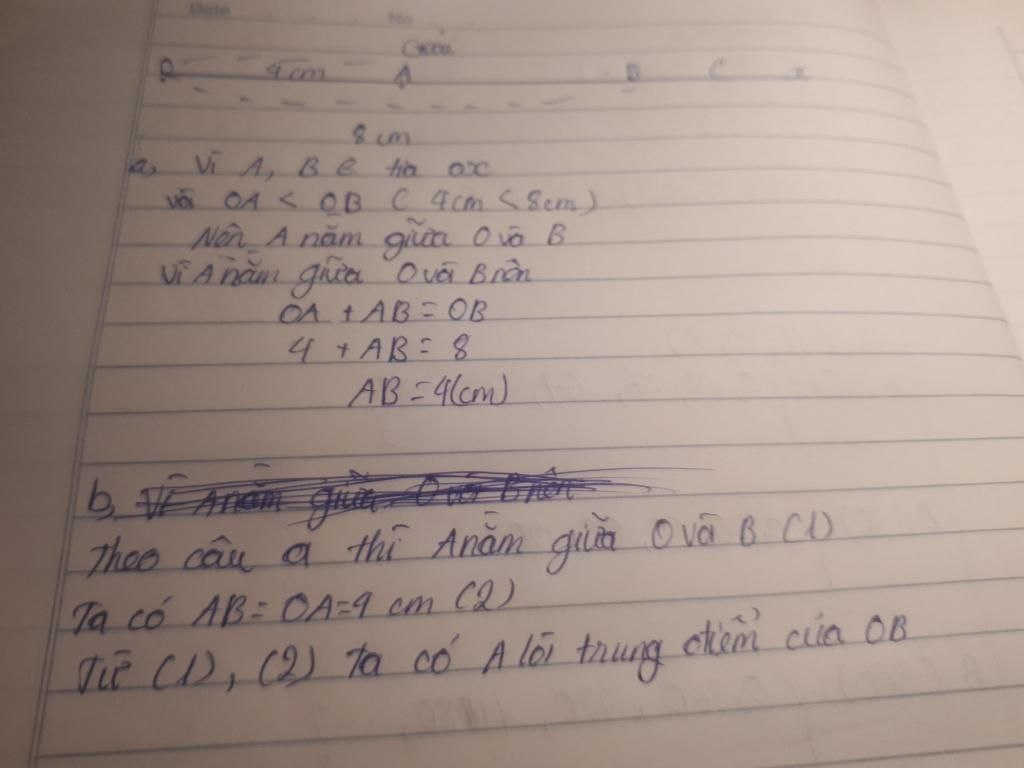 Date No
Giải
O 4cm A B C x
8 cm
a, Vì A, B e tia ox
và OA < OB ( 4cm < 8cm)
Nên A nằm giữa O và B
Vì A nằm giữa O và B nên
OA + AB = OB
4 + AB = 8
AB = 4(cm)
b, Vì A nằm giữa O và B nên
Theo câu a thì A nằm giữa O và B (1)
Ta có AB = OA = 4 cm (2)
Từ (1), (2) Ta có A là trung điểm của OB